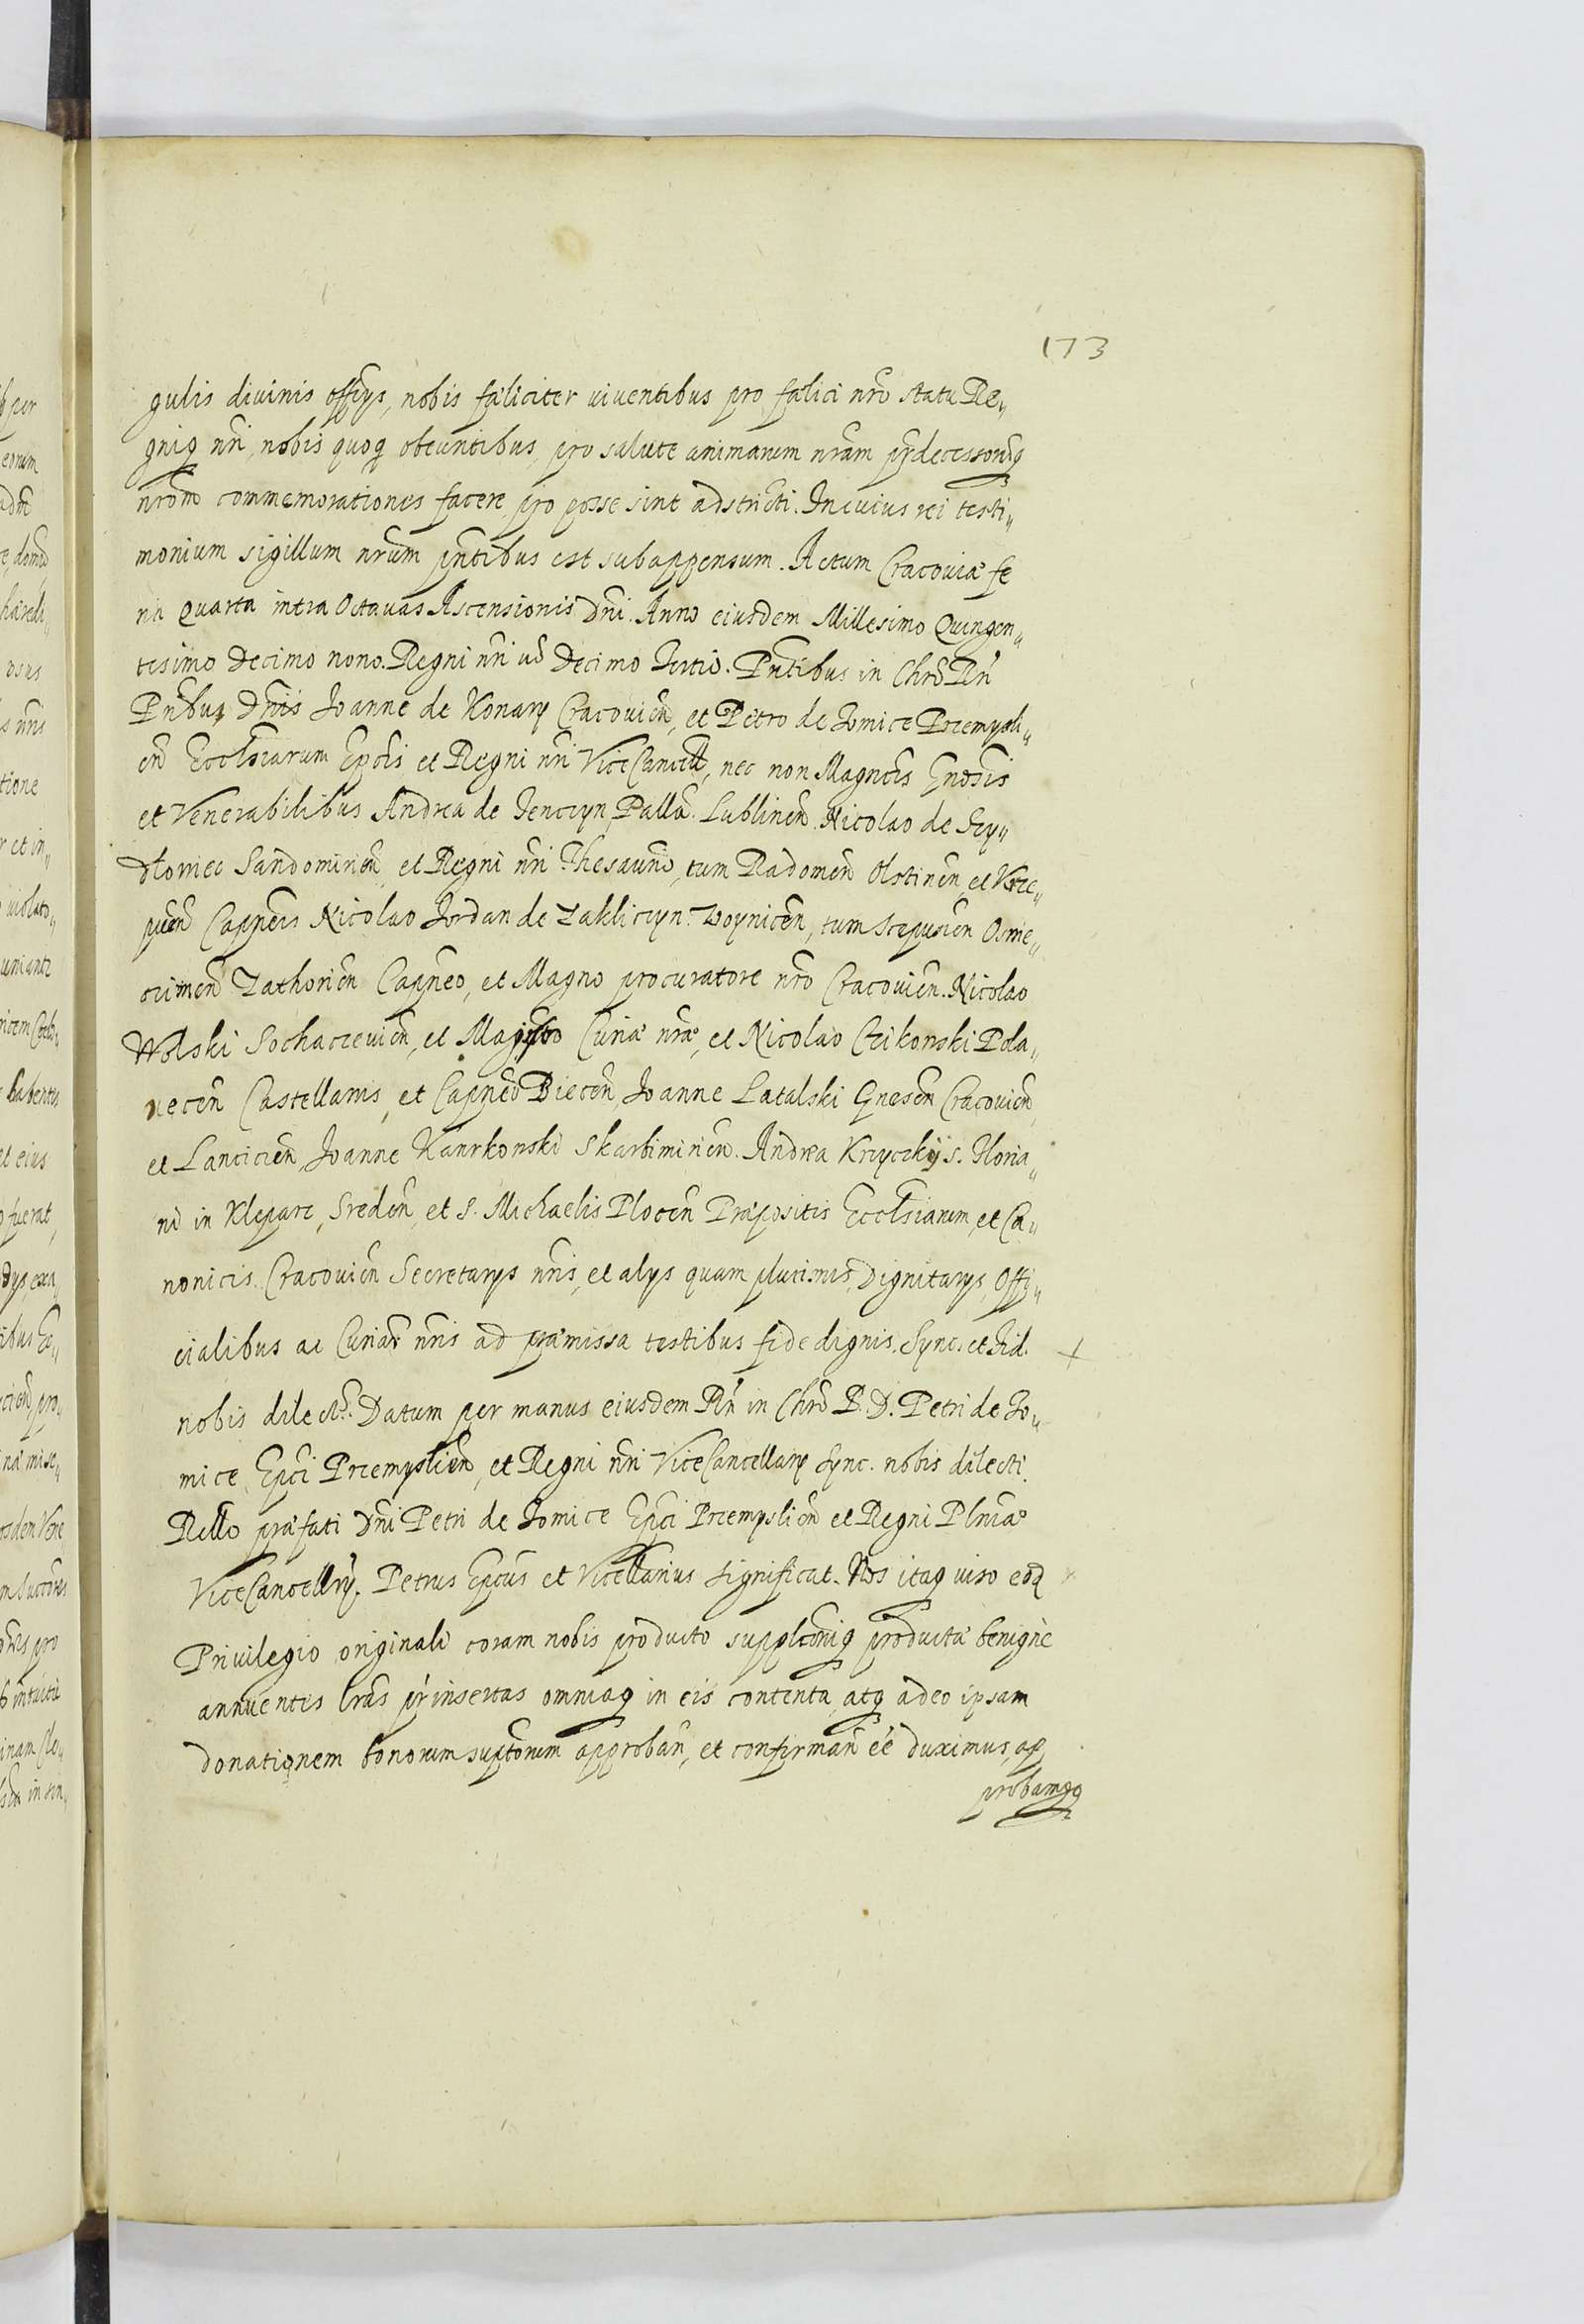 173
gulis diuinis offijs, nobis fæliciter viventibus pro fælici nrõ statu Re„
gniq nri, nobis quoq obeuntibus, pro salute animarum nrãm prædecessorũq
nrõrũ commemorationes facere, pro posse sint adstricti. In cuius rei testi„
monium sigillum nrũm pñtibus est subappensum. Actum Cracoviæ fe
ria Quarta intra Octavas Ascensionis Dni. Anno eiusdem Millesimo Quingen„
tesimo Decimo nono. Regni nri võ Decimo Tertio. Pñtibus in Chrõ Rñ
Prĩbus Dnis Joanne de Konary Cracovieñ, et Petro de Tomice Przemysli„
eñ Ecclsiarum Epcis et Regni nri ViceCancell, nec non Magncis Gnosis
et Venerabilibus Andrea de Tenczyn Pallõ. Lublineñ. Nicolao de Szy„
dlowiec Sandomirieñ, et Regni nri Thesaurio, tum Radomeñ Olstineñ, et Krze„
pieñ Capneis Nicolao Jordan de Zakliczyn. Woyniceñ, tum Scepusieñ Oswie„
cimeñ Zathorieñ Capneo, et Magno procuratore nrõ Cracovieñ. Nicolao
Wolski Sochaczevieñ, et Magistro Curiæ nræ, et Nicolao Czikowski Pola„
neceñ Castellanis, et Capneo Bieceñ, Joanne Latalski Gneseñ Cracovieñ
et Lancicieñ Joanne Karnkowski Skarbimirieñ. Andrea Krzyczkij S. Floria„
ni in Kleparz, Sredeñ, et S. Michaelis Ploceñ Præpositis Ecclsiarum, et Ca„
nonicis Cracovieñ Secretarijs nris, et alijs quam plurimis, Dignitarijs, Offi„
cialibus ac Curiañ nris ad præmissa testibus fide dignis. Sync. et Fid.
nobis dilect. Datum per manus eiusdem Rñ in Chrõ P. D. Petri de To„
mice, Epci Przemyslieñ, et Regni nri ViceCancellarij sync. nobis dilecti.
Rello præfati Dni Petri de Tomice Epci Przemyslieñ et Regni Plniæ
ViceCancellrij. Petrus Epcus et Vicellarius significat. Nos itaq viso eoq
Privilegio originali coram nobis producto supplconiq producta benignè
annuentes lras prinsertas omniaq in eis contenta, atq adeo ipsam
donationem bonorum suptorum approbañ, et confirmañ ee duximus, ap
probamqq